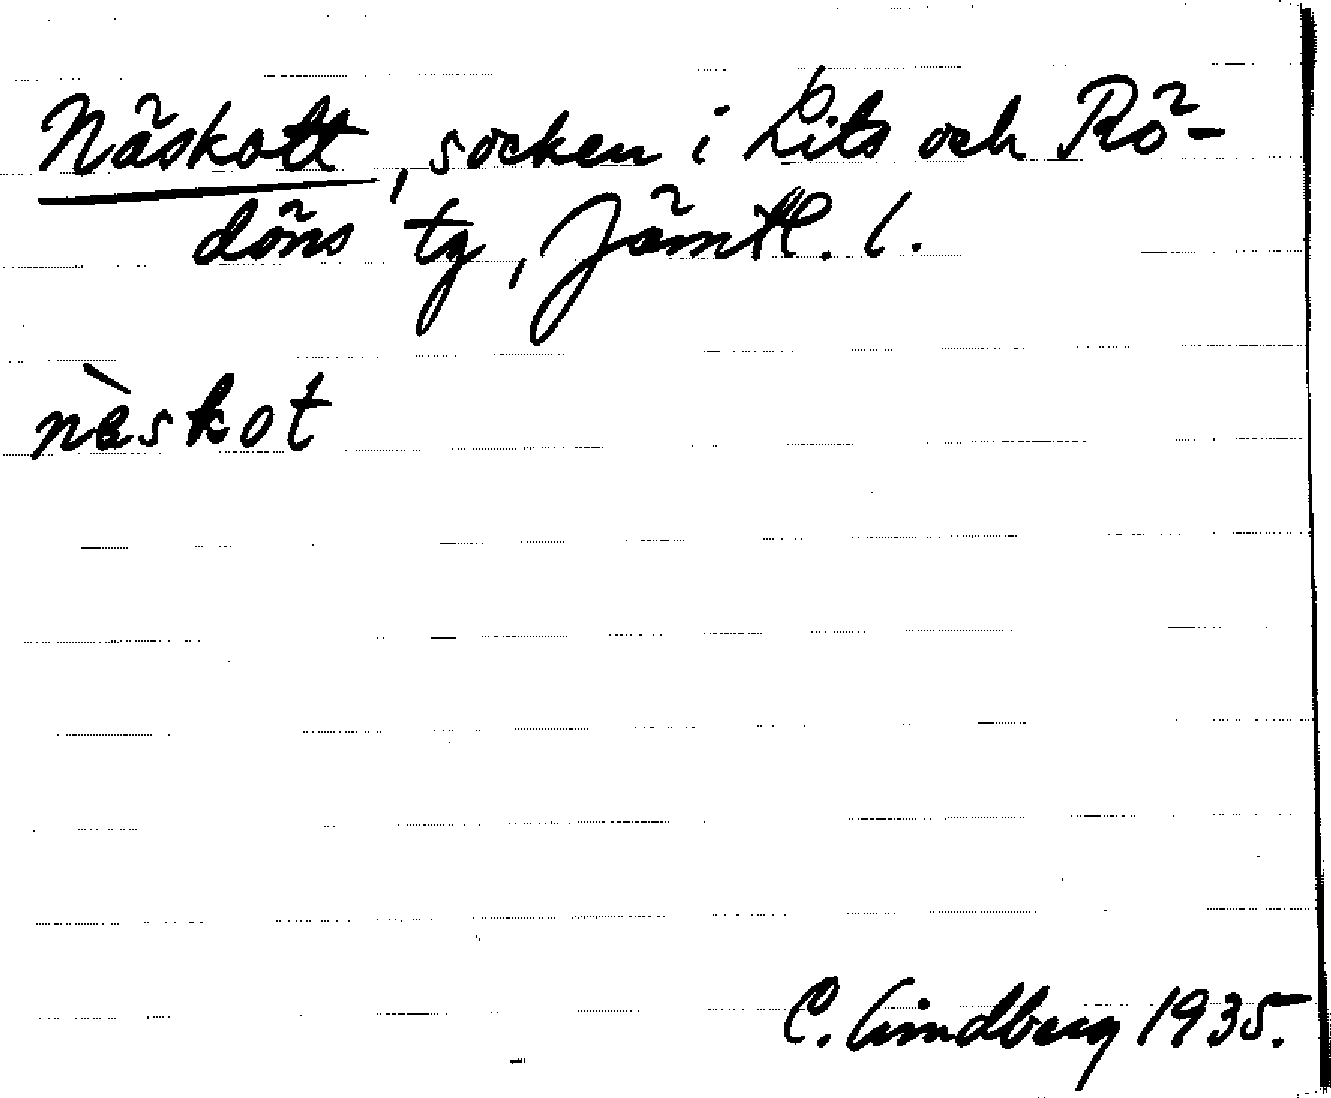 Näskott, socken i Lits och Rö-
döns tg, Jämtl. l.
nèskot
C. Lindberg 1935.